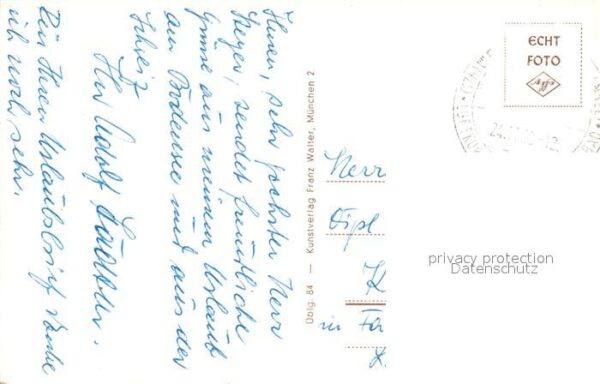 Ihnen, sehr geehrter Herr
Steger, sendet freundliche
Grüsse aus meinem Urlaub
am Bodensee und aus der
Schweiz
Ihr Adolf
Für Ihren Urlaubsbrief danke
ich sehr.
Üblg. 84 — Kunstverlag Franz Walter, München 2
ECHT
FOTO
Agfa
Herr
Dipl
K
in
privacy protection
Datenschutz